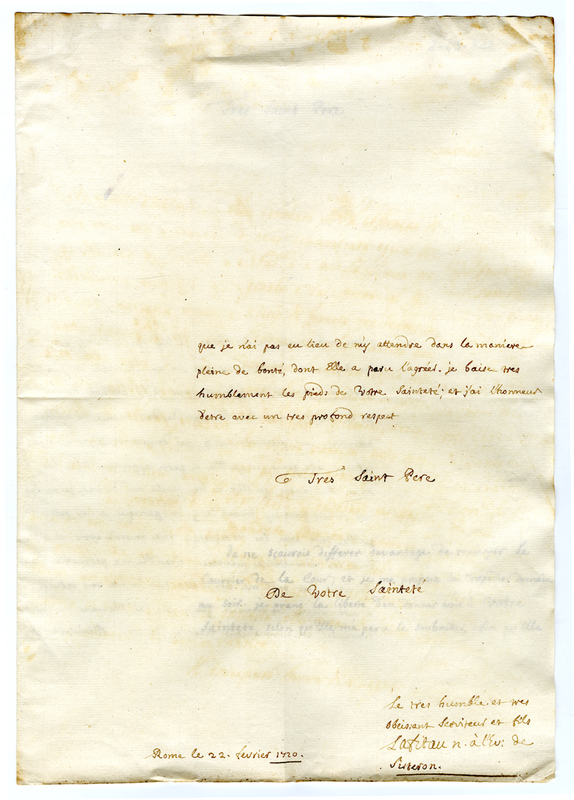 que je n'ai pas eu lieu de m'y attendre dans la maniere
pleine de bonté, dont Elle a paru l'agréer. je baise tres
humblement les pieds de Votre Sainteté; et j'ai l'honneur
d'etre avec un tres profond respect
Tres Saint Pere
De Votre Sainteté
Le tres humble et tres
obeissant serviteur et fils
Lafitau n. à l'Ev: de
Sisteron.
Rome le 22. fevrier 1720.